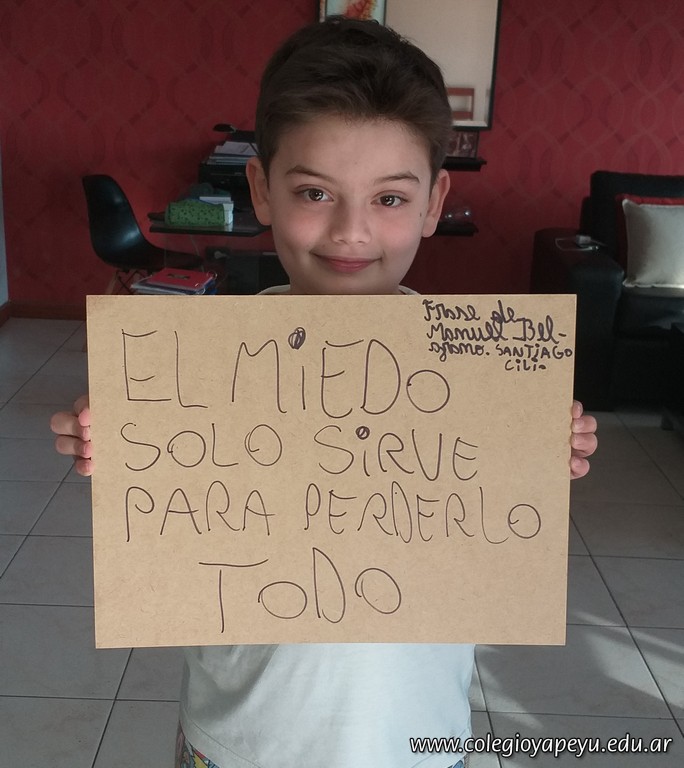 Frase de
Manuel Bel-
grano. SANTIAGO
Cili.
EL MiEDO
SOLO SiRVE
PARA PERDERLO
ToDO
www.colegioyapeyu.edu.ar